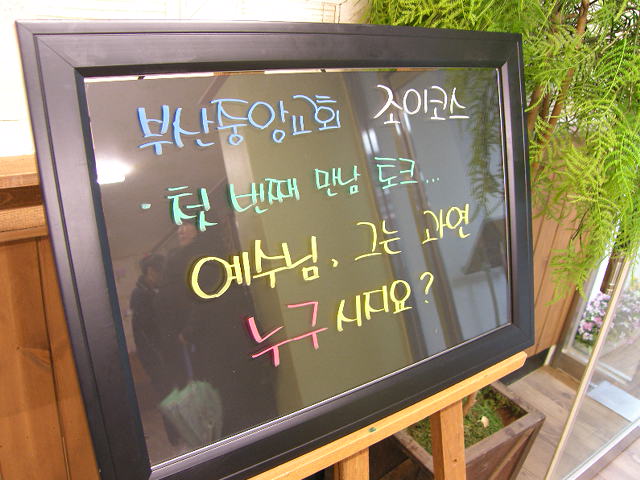 부산중앙교회 조이코스
· 첫 번째 만남 토크...
예수님, 그는 과연
누구시지요?